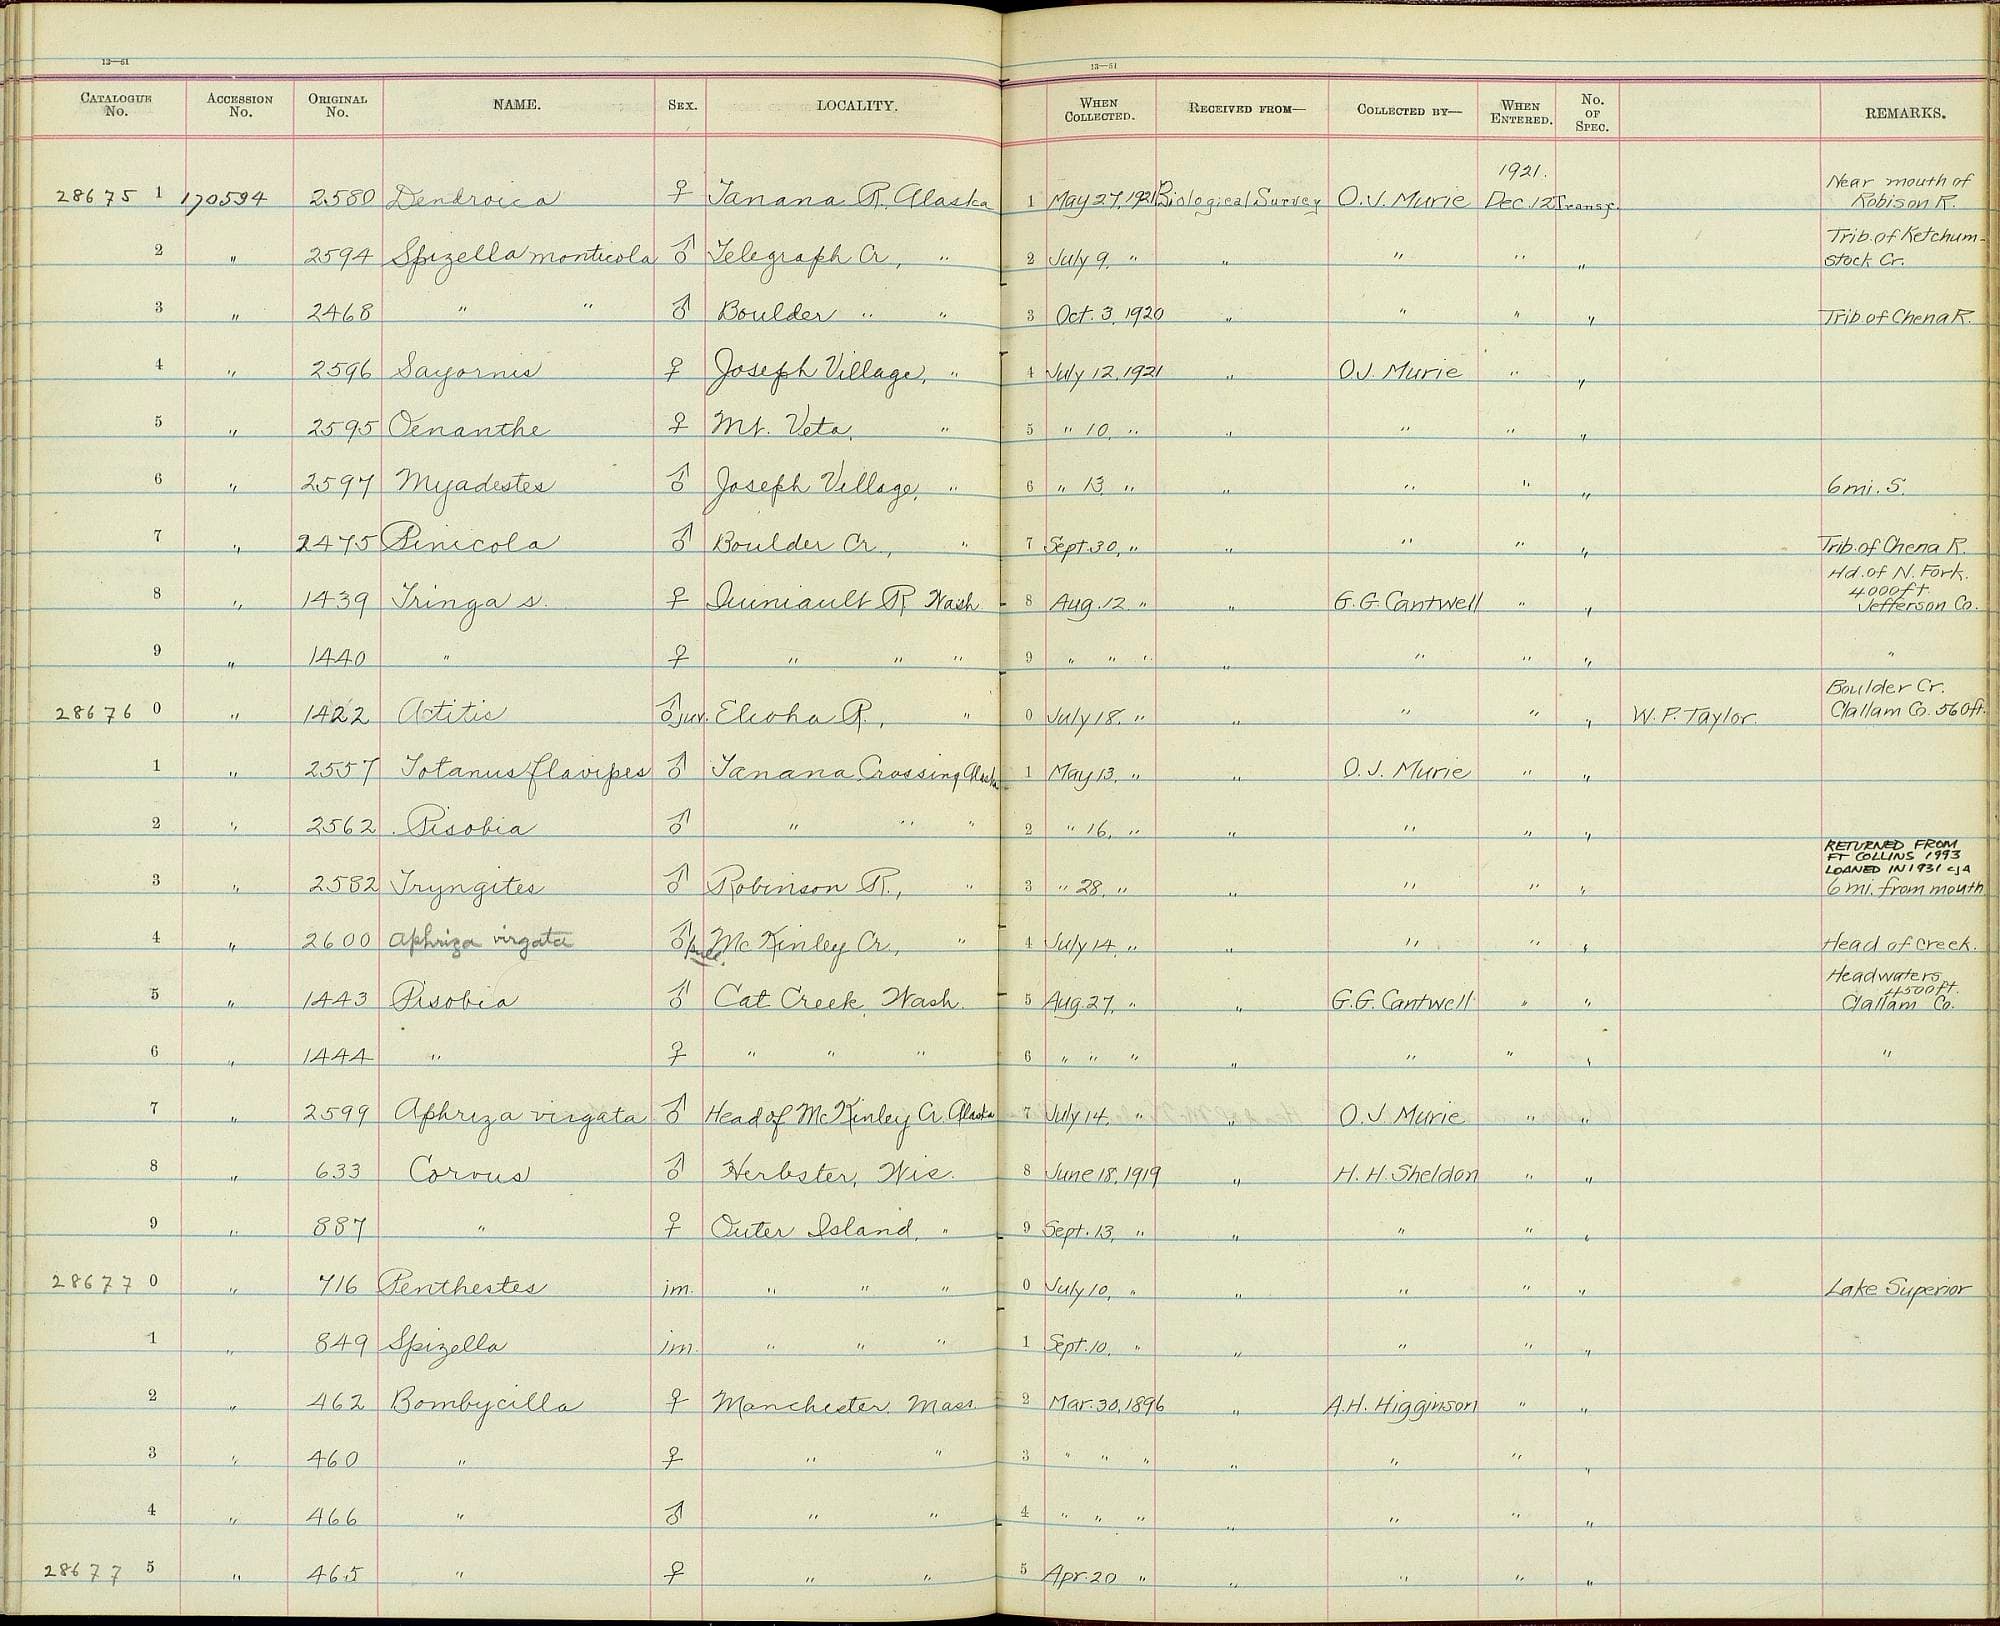 13—51 13—51
CATALOGUE No. ACCESSION No. ORIGINAL No. NAME. SEX. LOCALITY. WHEN COLLECTED. RECEIVED FROM— COLLECTED BY— WHEN ENTERED. No. OF SPEC. REMARKS.
28675 1 170594 2580 Dendroica ♀ Tanana R. Alaska 1 May 27, 1921 Biological Survey O.J. Murie 1921. Dec. 12 Transf. Near mouth of Robison R.
2 " 2594 Spizella monticola ♂ Telegraph Cr., " 2 July 9, " " " " " Trib. of Ketchum-stock Cr.
3 " 2468 " " ♂ Boulder " " 3 Oct. 3, 1920 " " " " Trib. of Chena R.
4 " 2596 Sayornis ♀ Joseph Village, " 4 July 12, 1921 " O.J. Murie " "
5 " 2595 Oenanthe ♀ Mt. Veta, " 5 " 10, " " " " "
6 " 2597 Myadestes ♂ Joseph Village, " 6 " 13, " " " " " 6 mi. S.
7 " 2475 Pinicola ♂ Boulder Cr., " 7 Sept. 30, " " " " " Trib. of Chena R.
8 " 1439 Tringa s. ♀ Quiniault R Wash. 8 Aug. 12 " " G.G. Cantwell " " Hd. of N. Fork. 4000 ft. Jefferson Co.
9 " 1440 " ♀ " " " 9 " " " " " " " "
28676 0 " 1422 Actitis ♂ juv. Elwha R., " 0 July 18, " " " " " W.P. Taylor. Boulder Cr. Clallam Co. 560 ft.
1 " 2557 Totanus flavipes ♂ Tanana Crossing Alaska 1 May 13, " " O.J. Murie " "
2 " 2562 Pisobia ♂ " " " 2 " 16, " " " " "
3 " 2582 Tryngites ♂ Robinson R., " 3 " 28, " " " " " RETURNED FROM FT COLLINS 1993 LOANED IN 1931 CJA 6 mi. from mouth
4 " 2600 Aphriza virgata ♂ pull. McKinley Cr., " 4 July 14, " " " " " Head of creek.
5 " 1443 Pisobia ♂ Cat Creek, Wash. 5 Aug. 27, " " G.G. Cantwell " " Headwaters, 4500 ft. Clallam Co.
6 " 1444 " ♀ " " " 6 " " " " " " " "
7 " 2599 Aphriza virgata ♂ Head of McKinley Cr. Alaska 7 July 14, " " O.J. Murie " "
8 " 633 Corvus ♂ Herbster, Wis. 8 June 18, 1919 " H.H. Sheldon " "
9 " 887 " ♀ Outer Island, " 9 Sept. 13, " " " " "
28677 0 " 716 Penthestes im. " " " 0 July 10, " " " " " Lake Superior
1 " 849 Spizella im. " " " 1 Sept. 10, " " " " "
2 " 462 Bombycilla ♀ Manchester, Mass. 2 Mar. 30, 1896 " A.H. Higginson " "
3 " 460 " ♀ " " 3 " " " " " " "
4 " 466 " ♂ " " 4 " " " " " " "
28677 5 " 465 " ♀ " " 5 Apr. 20 " " " " "